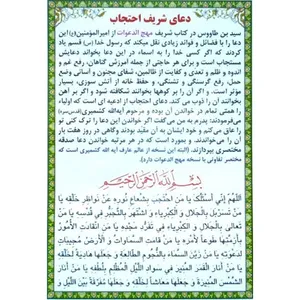 دعای شریف احتجاب
سید بن طاووس در کتاب شریف مهج الدعوات از امیرالمؤمنین(ع) این
دعا را با فضائل و فوائد زیادی نقل میکند که رسول خدا (ص) قسم یاد
کردند که اگر کسی خدا را به اسماء در این دعا بخواند دعایش
مستجاب است و برای هر حاجتی از جمله آمرزش گناهان، رفع غم و
اندوه و ظلم و تعدی و کفایت از ظالمین، شفای مجنون و آسانی وضع
حمل، رفع گرسنگی و تشنگی، و حفظ خانه از آتش سوزی، بسیار
موثر است. و اگر آن را بر کوهها بخوانند شکافته شود و اگر بر آهن
بخوانند آن را ذوب می کند. دعای احتجاب از ادعیه ای است که اولیاء
را همتی تمام در خواندن آن بوده و مرحوم آیةالله کشمیری(ره)
می‌فرمودند: پدرم به من می گفت اگر خواندن این دعا را ترک کنی تو
را عاق می‌کنم و خود ایشان به آن مقید بودند و گاهی در روز هفت بار
آن را می‌خواندند. و بمورد است که در هر مرتبه خواندن دعا صدقه
مختصری بپردازند. (البته این نسخه از عالم عارف آیه الله کشمیری است که
مختصر تفاوتی با نسخه مهج الدعوات دارد).
بِسْمِ اللهِ الرَّحْمنِ الرَّحیمِ
اَللّهُمَّ اِنّی اَسئَلُکَ یا مَنِ احْتَجَبَ بِشُعاعِ نُورِهِ عَنْ نَواظِرِ خَلْقِهِ یا
مَنْ تَسَرْبَلَ بِالْجَلالِ وَ الْکِبْرِیاءِ وَ اشْتَهَرَ بِالتَّجَبُّرِ فی قُدْسِهِ یا مَنْ
تَعالی بِالْجَلالِ وَ الْکِبْرِیاءِ فی تَفَرُّدِ مَجْدِهِ یا مَنِ انْقادَتِ الْاُمُورُ
بِاَزِمَّتِها طَوْعاً لِاَمْرِهِ یا مَنْ قامَتِ السَّماواتُ وَ الْاَرَضُونَ مُجیباتٍ
لِدَعْوَتِهِ یا مَنْ زَیَّنَ السَّماءَ بِالنُّجُومِ الطّالِعَةِ وَ جَعَلَها هادِیَةً لِخَلْقِهِ
یا مَنْ اَنارَ الْقَمَرَ الْمُنیرَ فی سَوادِ اللَّیْلِ الْمُظْلِمِ بِلُطْفِهِ یا مَنْ اَنارَ
الشَّمْسَ الْمُنیرَةَ وَ جَعَلَها مَعاشاً لِخَلْقِهِ وَ جَعَلَها مُفَرِّقَةً بَیْنَ اللَّیْلِ وَ